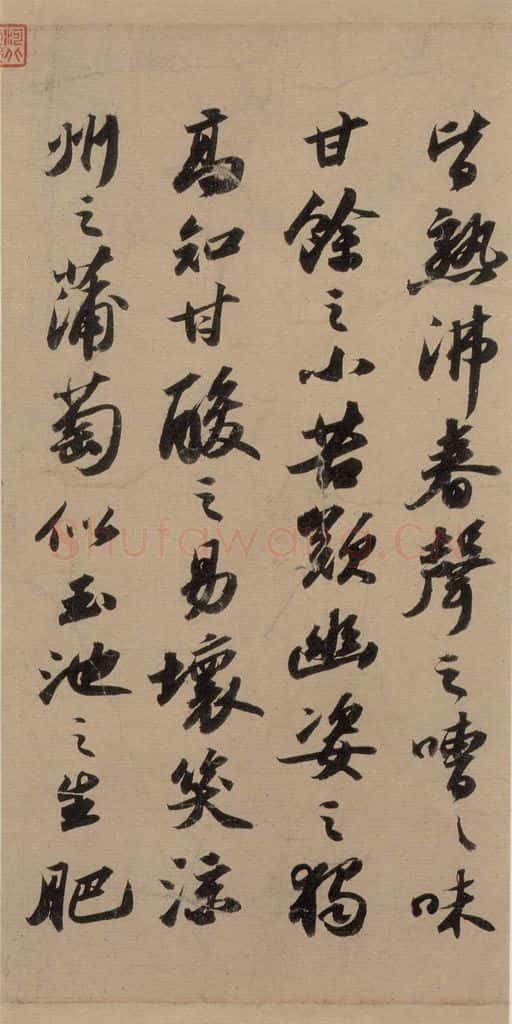 皆熟沸舂聲之嘈〻味
甘餘之小苦歎幽姿之獨
高知甘酸之易壞笑涼
州之蒲萄似玉池之生肥
Shufawang.CN